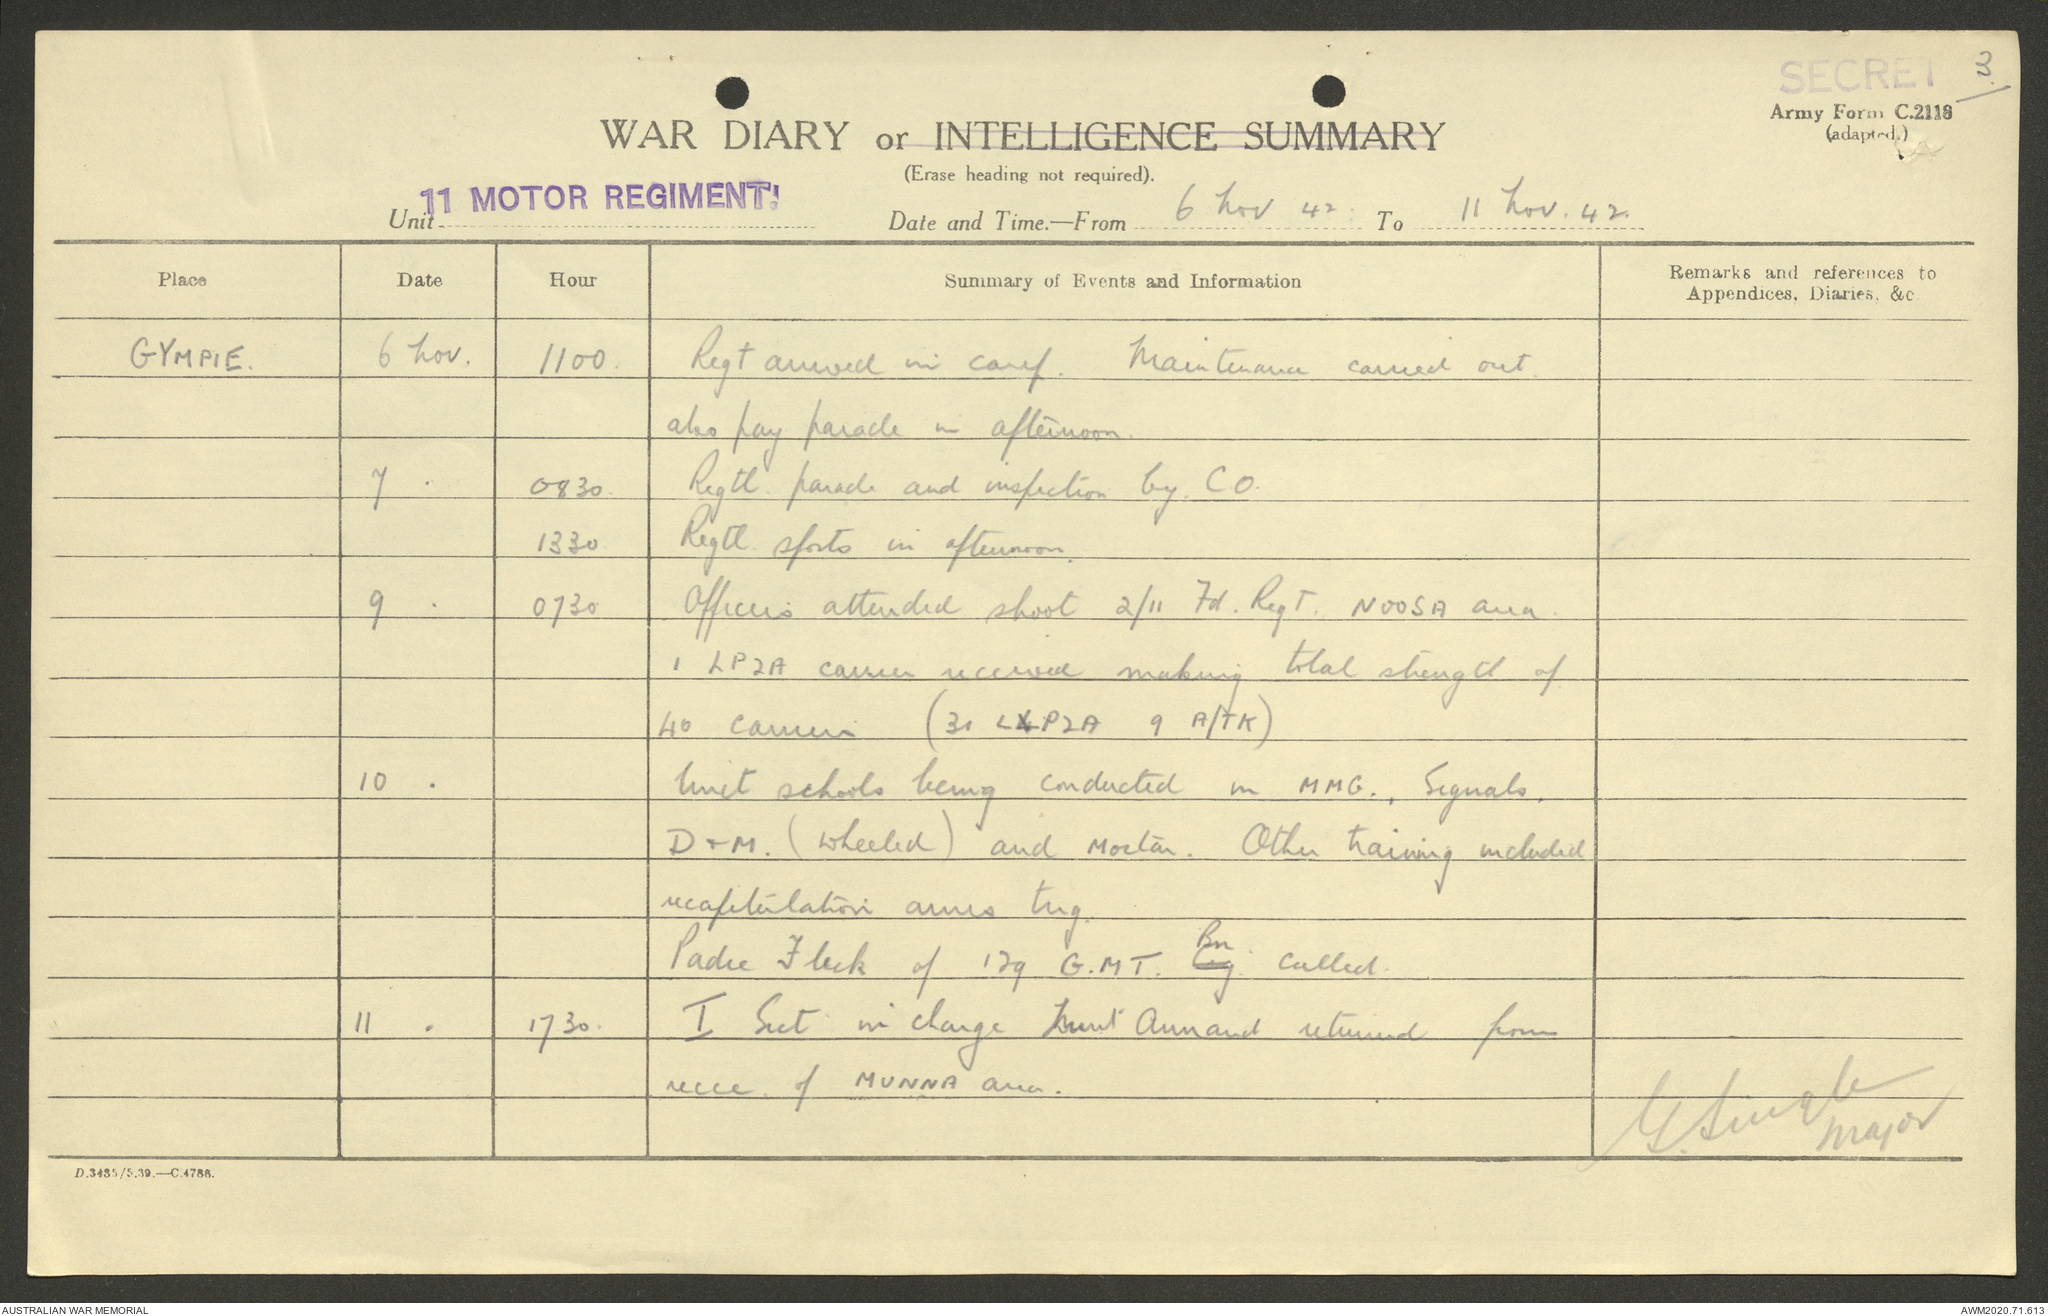 SECRET 3.
Army Form C.2118
(adapted.)
WAR DIARY or INTELLIGENCE SUMMARY
(Erase heading not required).
11 MOTOR REGIMENT.
Unit Date and Time.—From 6 Nov 42. To 11 Nov. 42.
Place Date Hour Summary of Events and Information Remarks and references to
Appendices, Diaries, &c.
GYMPIE. 6 Nov. 1100. Regt arrived in camp. Maintenance carried out.
also pay parade in afternoon.
7 " 0830. Regtl. parade and inspection by CO.
1330 Regtl. sports in afternoon.
9 " 0730 Officers attended shoot 2/11 Fd. Regt. NOOSA area.
1 LP2A carrier received making total strength of
40 carriers (31 LP2A 9 A/TK)
10 " Unit schools being conducted in MMG., Signals,
D+M. (wheeled) and Mortar. Other training included
recapitulation arms trg.
Padre Fleck of 129 G.M.T. Bn called.
11 " 1730. I Sect in charge Annand returned from
recce. of MUNNA area.
Major
D.3485/5.39.—C.4788.
AUSTRALIAN WAR MEMORIAL AWM2020.71.613